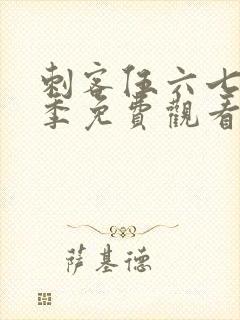 刺客伍六七
季免費觀看
萨基德